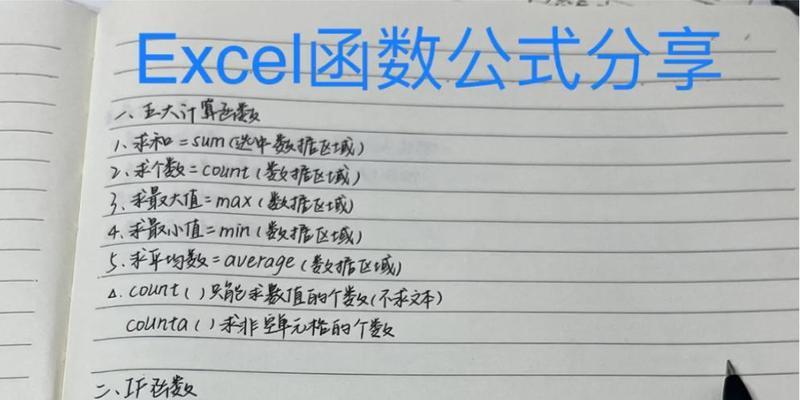 Excel函数公式分享
一、五大计算函数
1、求和=sum(选中数据区域)
2、求个数=count(数据区域)
3、求最大值=max(数据区域)
4、求最小值=min(数据区域)
5、求平均数=average(数据区域)
Δ. count()只能求数值的个数(不求文本)
counta()求非空单元格的个数
二、IF函数